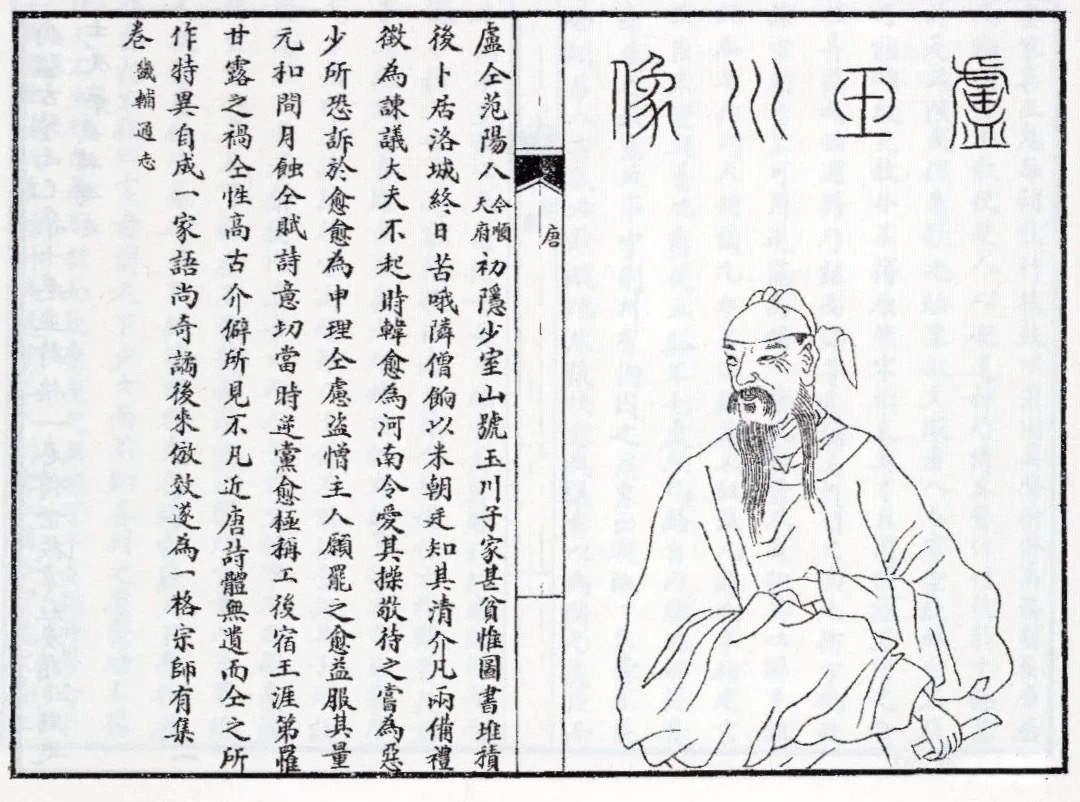 盧玉川像
唐
盧仝范陽人今順天府初隱少室山號玉川子家甚貧惟圖書堆積
後卜居洛城終日苦哦隣僧餉以米朝廷知其清介凡兩備禮
徵為諫議大夫不起時韓愈為河南令愛其操敬待之嘗為惡
少所恐訴於愈愈為申理仝慮盜憎主人願罷之愈益服其量
元和間月蝕仝賦詩意切當時逆黨愈極稱工後宿王涯第罹
甘露之禍仝性高古介僻所見不凡近唐詩體無遺而仝之所
作特異自成一家語尚奇譎後來倣效遂為一格宗師有集
卷畿輔通志